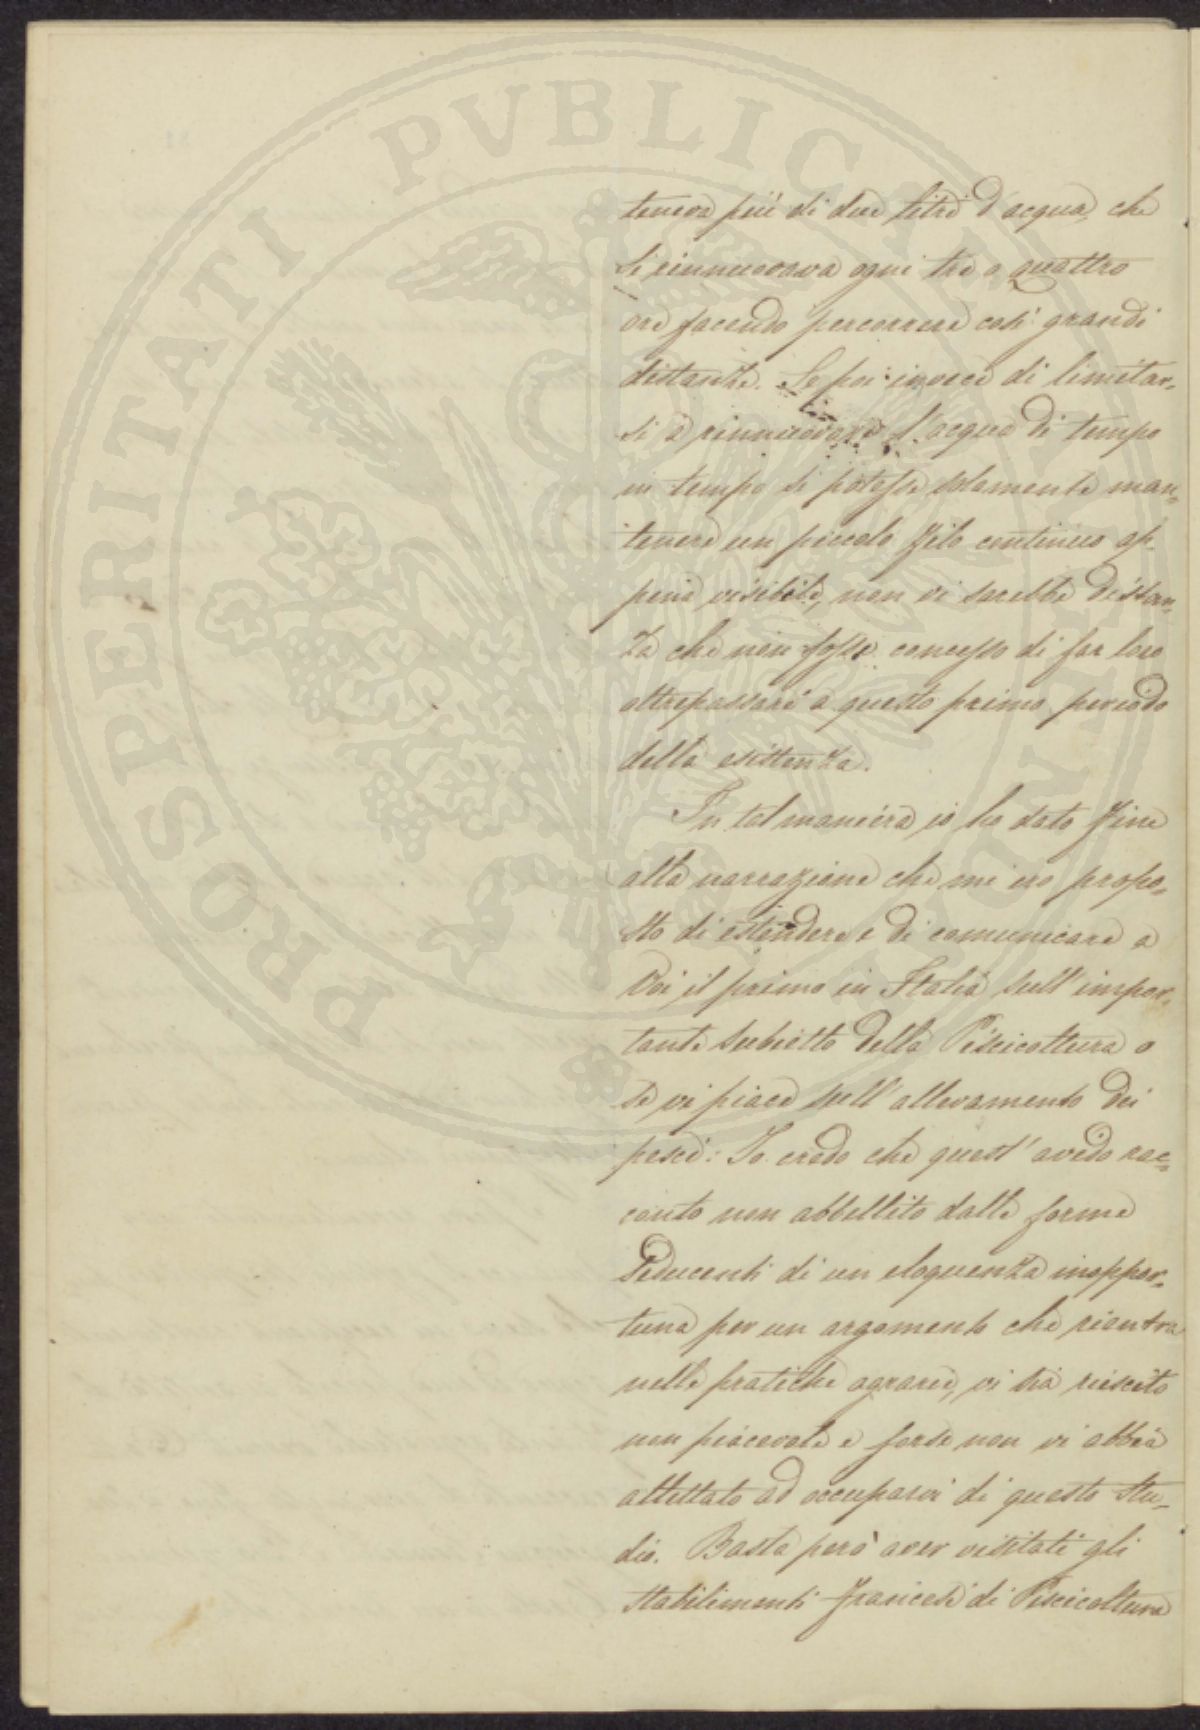 PROSPERITATI PVBLICAE
teneva più di due litri d'acqua, che
si rinnuovava ogni tre o quattro
ore facendo percorrere così grandi
distanze. Se poi invece di limitar-
si a rinnuovare l'acqua di tempo
in tempo si potesse solamente man-
tenere un piccolo filo continuo ap-
pena visibile, non vi sarebbe distan-
za che non fosse concesso di far loro
oltrepassare a questo primo periodo
della esistenza.
In tal maniera io ho dato fine
alla narrazione che mi ero propo-
sto di estendere e di comunicare a
Voi il primo in Italia sull'impor-
tante subietto della Piscicoltura o
se vi piace sull'allevamento dei
pesci: Io credo che quest'arido rac-
conto non abbellito dalle forme
seducenti di un eloquenza inoppor-
tuna per un argomento che rientra
nelle pratiche agrarie, vi sia riescito
non piacevole e forse non vi abbia
allettato ad occuparvi di questo stu-
dio. Basta però aver visitati gli
stabilimenti francesi di Piscicoltura